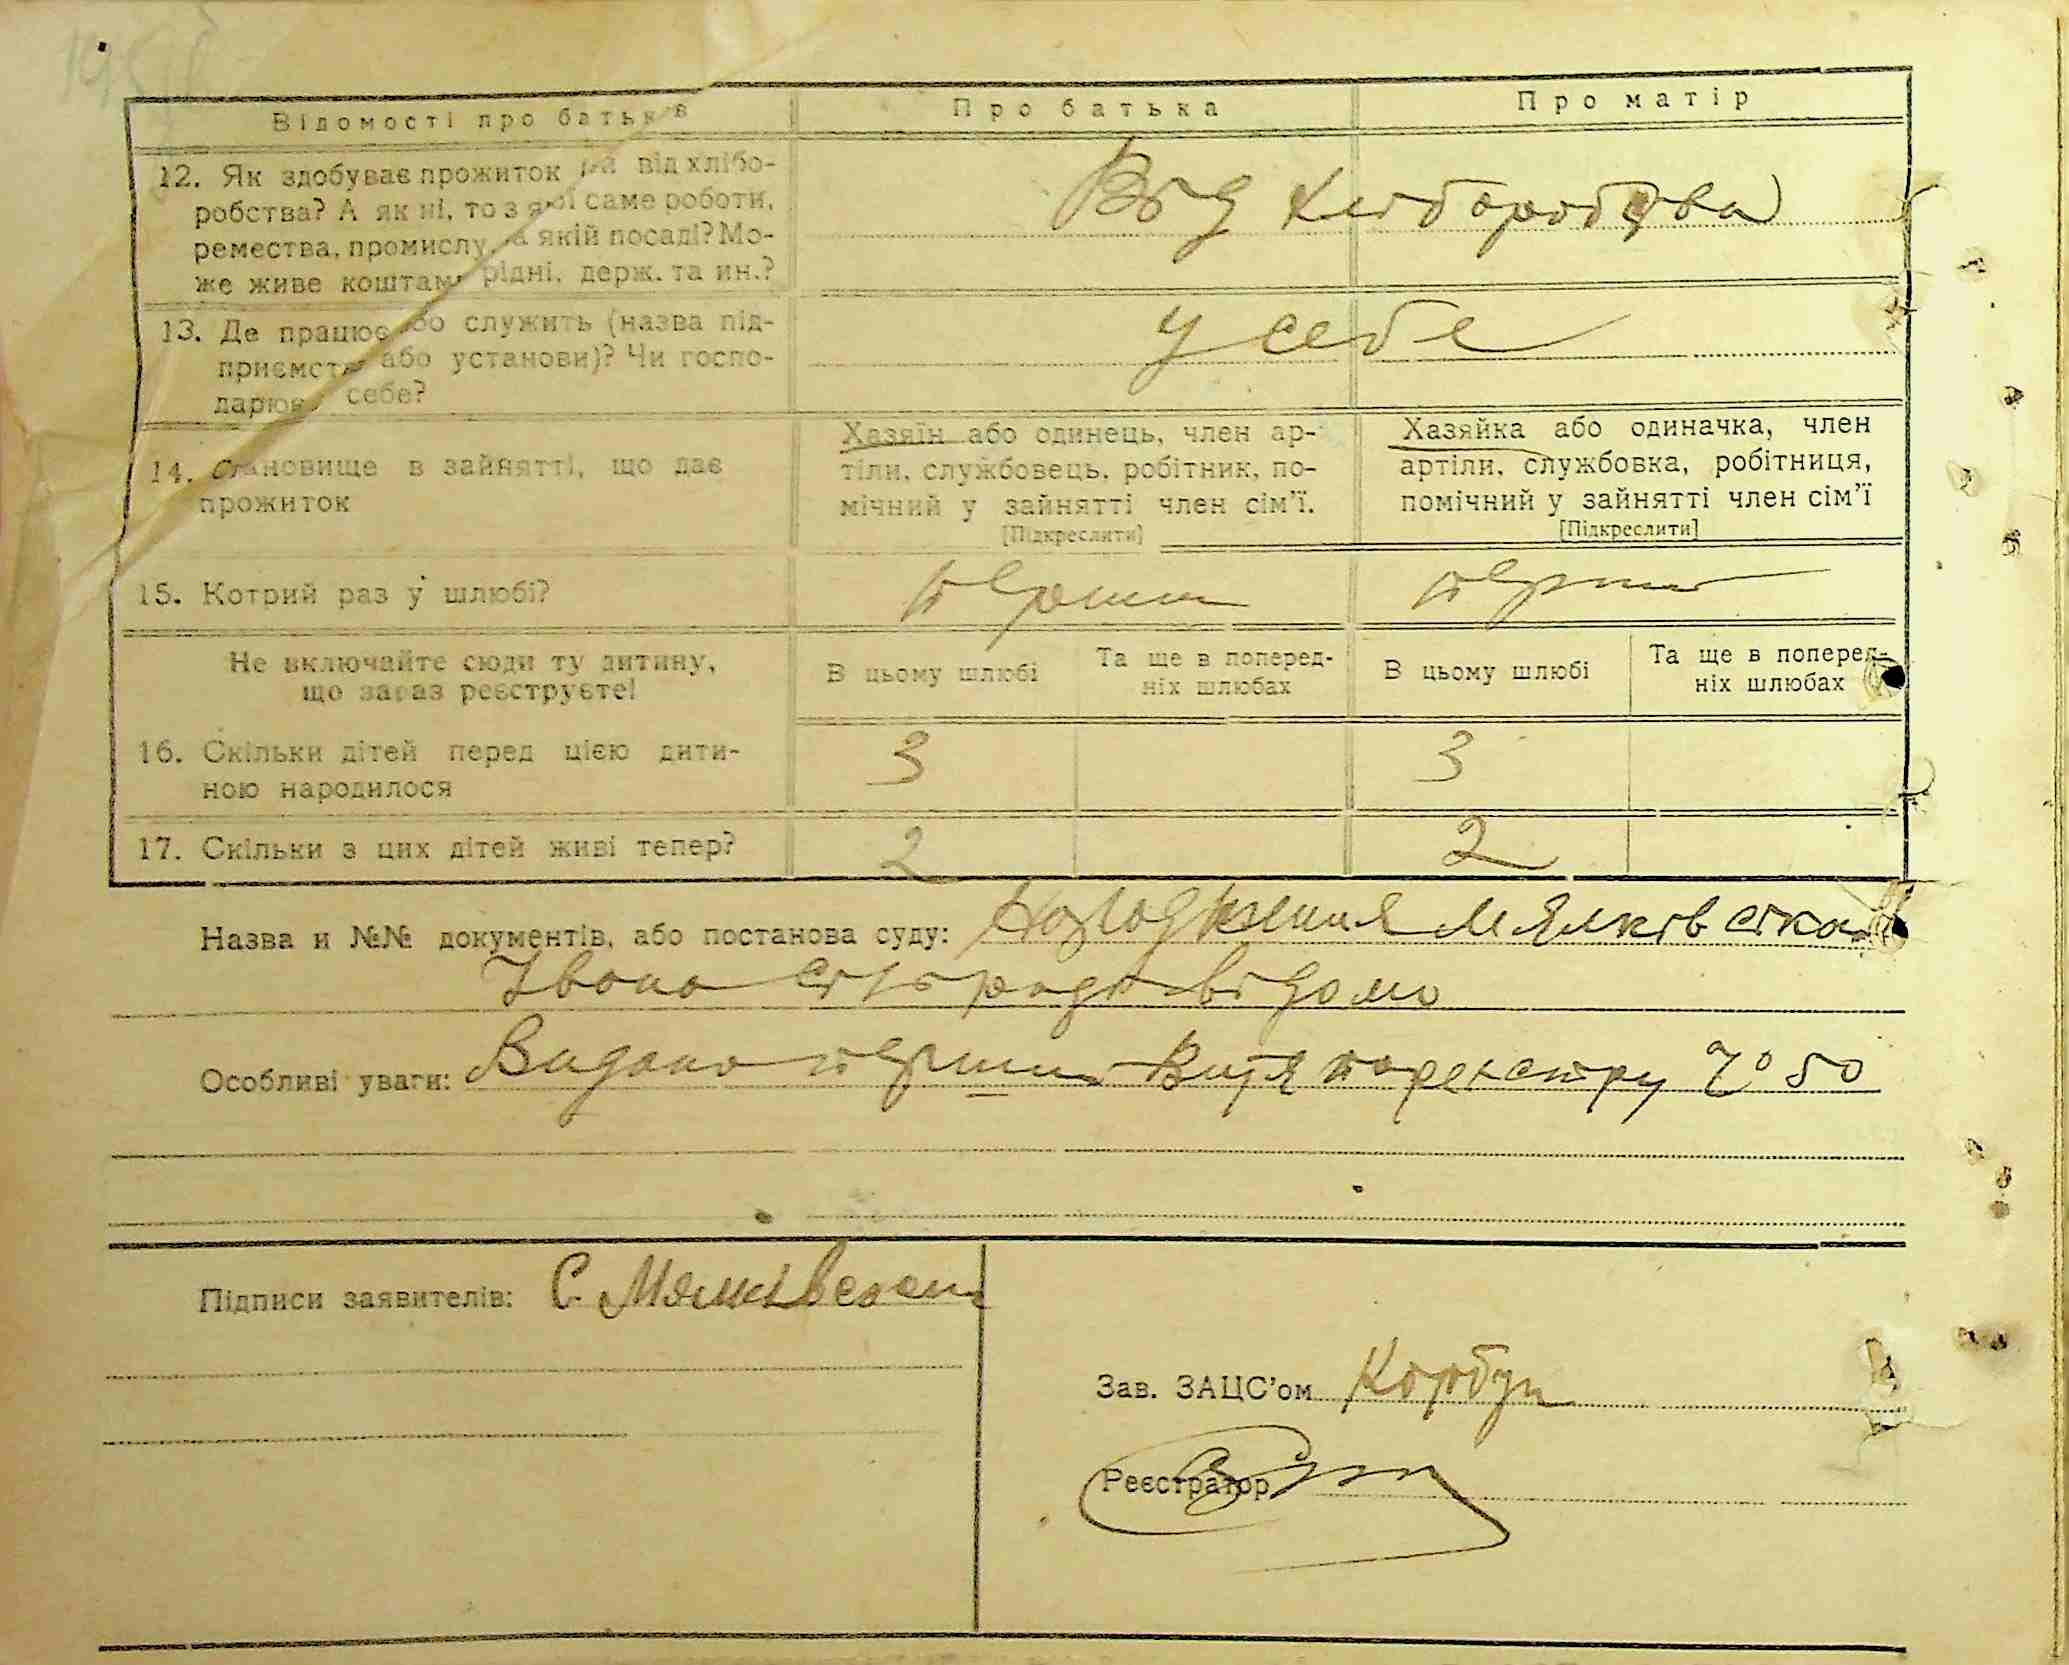 Відомості про батьків
Про батька
Про матір
12. Як здобуває прожиток чи від хлібо-
робства? А як ні, то з якої саме роботи,
ремества, промислу, на якій посаді? Мо-
же живе коштами рідні, держ. та ин.?
Від хліборобства
13. Де працює або служить (назва під-
приємства або установи)? Чи госпо-
дарює у себе?
у себе
14. Становище в зайнятті, що дає
прожиток
Хазяїн або одинець, член ар-
тіли, службовець, робітник, по-
мічний у зайнятті член сім'ї.
[Підкреслити]
Хазяйка або одиначка, член
артіли, службовка, робітниця,
помічний у зайнятті член сім'ї
[Підкреслити]
15. Котрий раз у шлюбі?
перший
перший
Не включайте сюди ту дитину,
що зараз реєструєте!
В цьому шлюбі
Та ще в поперед-
ніх шлюбах
В цьому шлюбі
Та ще в поперед-
ніх шлюбах
16. Скільки дітей перед цією дити-
ною народилося
3
3
17. Скільки з цих дітей живі тепер?
2
2
Назва и №№ документів, або постанова суду:
Івана
Особливі уваги: Видано перший Витяг по реєстру № 50
Підписи заявителів: С.
Зав. ЗАЦС'ом
Реєстратор